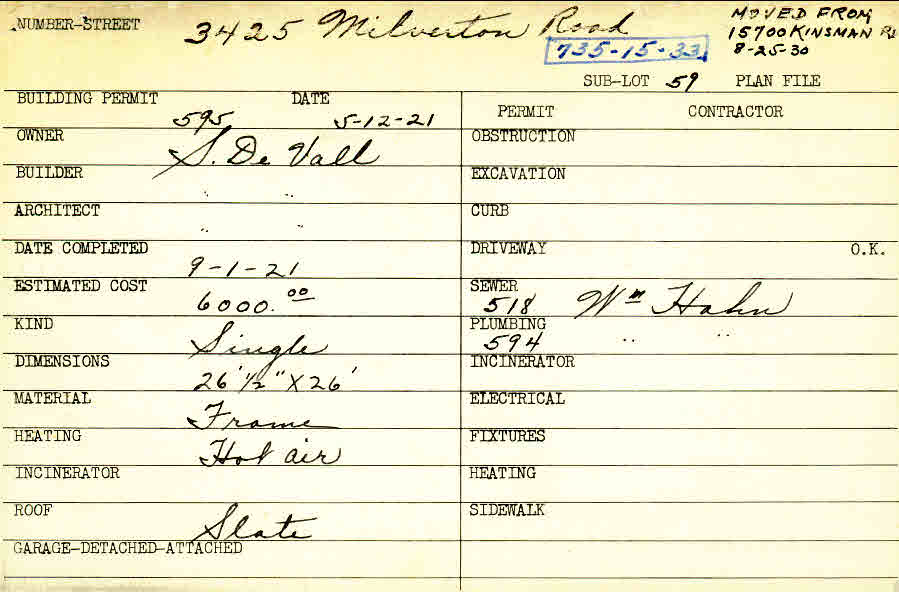 NUMBER-STREET 3425 Milverton Road
MOVED FROM
15700 KINSMAN Rd
8-25-30
735-15-33
SUB-LOT 59 PLAN FILE
BUILDING PERMIT 595 DATE 5-12-21
OWNER S. De Vall
BUILDER " "
ARCHITECT " "
DATE COMPLETED 9-1-21
ESTIMATED COST 6000.00
KIND Single
DIMENSIONS 26' 1/2" X 26'
MATERIAL Frame
HEATING Hot air
INCINERATOR
ROOF Slate
GARAGE-DETACHED-ATTACHED
PERMIT CONTRACTOR
OBSTRUCTION
EXCAVATION
CURB
DRIVEWAY O.K.
SEWER 518 Wm Hahn
PLUMBING 594 " "
INCINERATOR
ELECTRICAL
FIXTURES
HEATING
SIDEWALK